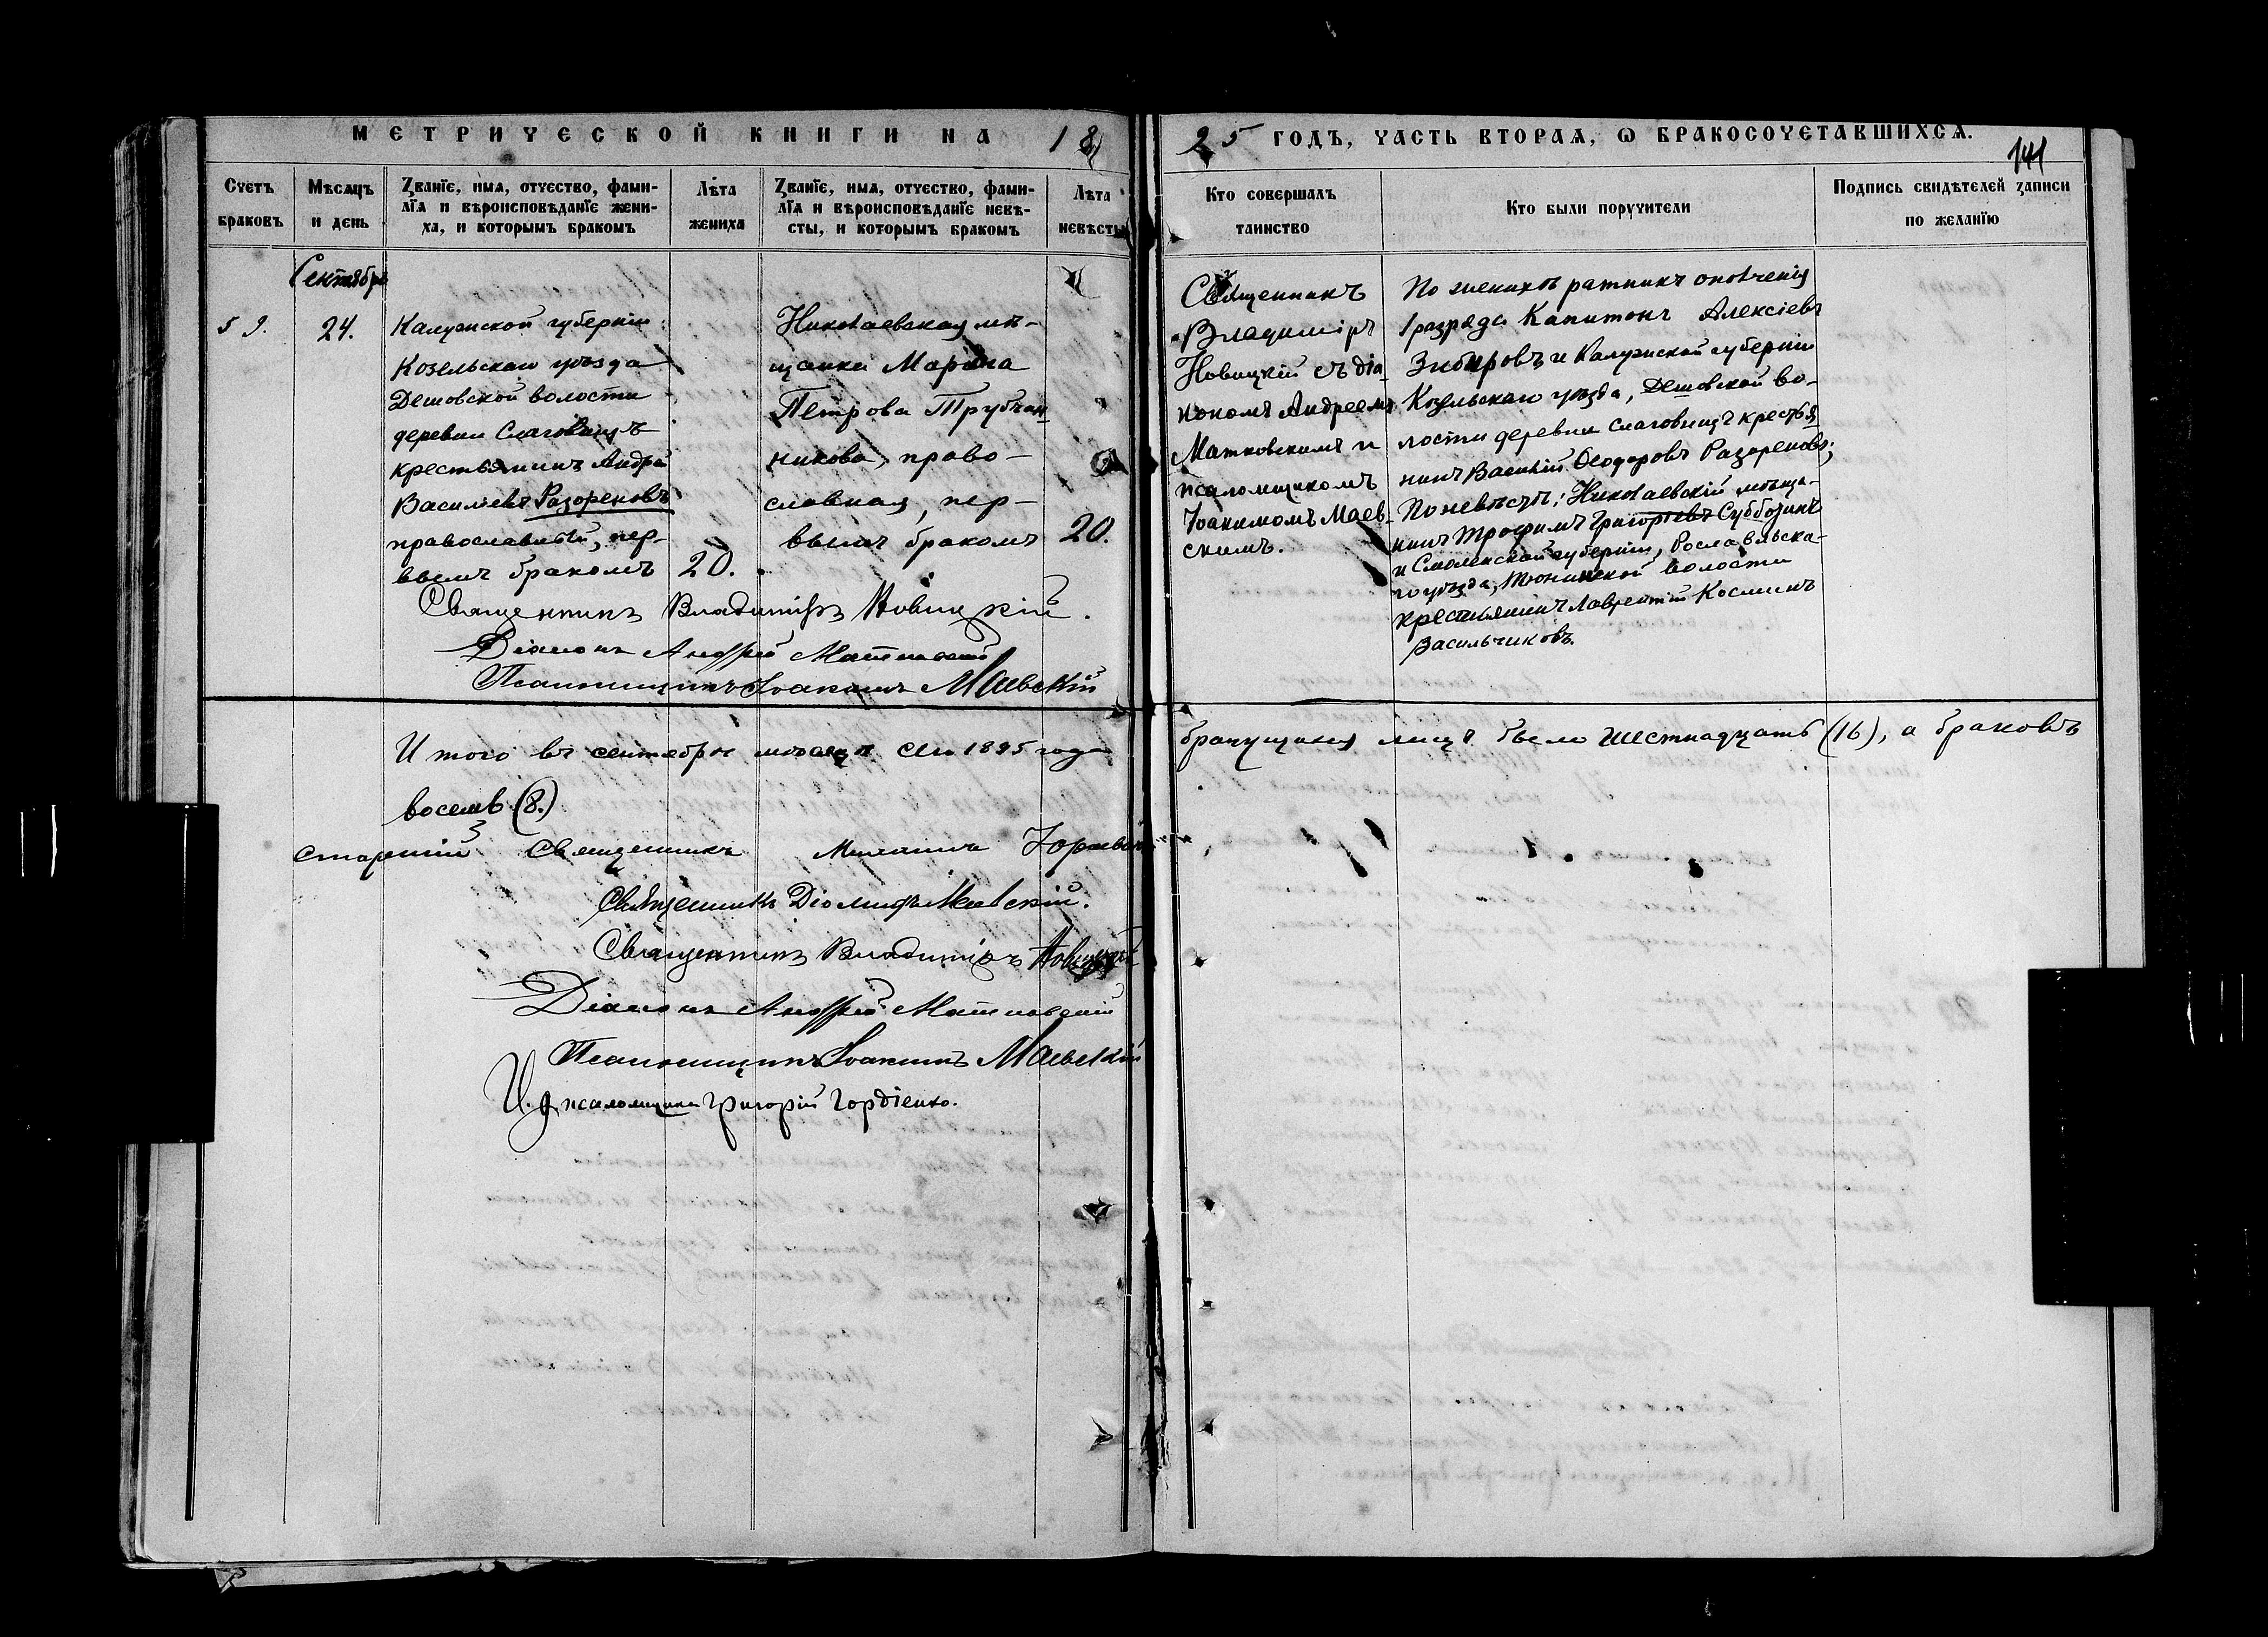 МЕТРИЧЕСКОЙ КНИГИ НА 18
95 ГОДЪ, ЧАСТЬ ВТОРАѦ, Ѡ БРАКОСОЧЕТАВШИХСѦ.
141
Счетъ браковъ
Мѣсѧцъ и день
Званїе, имѧ, отчество, фами-
лїѧ и вѣроисповѣданїе жени-
ха, и которымъ бракомъ
Лѣта жениха
Званїе, имѧ, отчество, фами-
лїѧ и вѣроисповѣданїе невѣ-
сты, и которымъ бракомъ
Лѣта невѣсты
Кто совершалъ
таинство
Кто были поручители
Подпись свидѣтелей записи
по желанїю
Сентябрь
59.
24.
Калужской губерніи
Козельскаго уѣзда
Дешовской волости
деревни Слаговищъ
крестьянинъ Андрей
Василіевъ Разореновъ
православный, пер-
вымъ бракомъ
20.
Николаевская мѣ-
щанка Марина
Петрова Трубчан-
никова, право-
славная, пер-
вымъ бракомъ
20.
Священникъ
Владиміръ
Новицкій съ діа-
кономъ Андреемъ
Матковскимъ и
псаломщикомъ
Іоакимомъ Маев-
скимъ.
По женихѣ ратникъ ополченія
1 разряда Капитонъ Алексіевъ
Зибировъ и Калужской губерніи
Козельскаго уѣзда, Дешовской во-
лости деревни Слаговищъ крестья-
нинъ Василій Ѳеодоровъ Разореновъ;
По невѣстѣ: Николаевскій мѣща-
нинъ Трофимъ Григоріевъ Субботинъ
и Смоленской губерніи, Рославльска-
го уѣзда, волости
крестьянинъ Лаврентій Косминъ
Васильчиковъ.
Священникъ Владиміръ Новицкій.
Діаконъ Андрей Матковскій
Псаломщикъ Іоакимъ Маевскій
Итого въ сентябрѣ мѣсяцѣ сего 1895 года
брачущихся лицъ было шестнадцать (16), а браковъ
восемь (8.)
Старшій Священникъ Михаилъ
Священникъ Діомидъ Маевскій.
Священникъ Владиміръ Новицкій
Діаконъ Андрей Матковскій
Псаломщикъ Іоакимъ Маевскій
И. д. псаломщика Григорій Гордіенко.